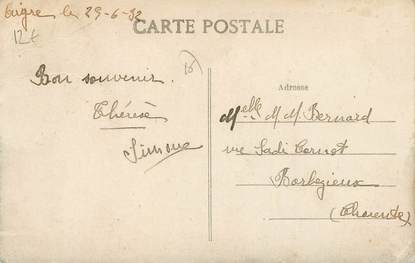 Aigre le 29-6-32
12€
CARTE POSTALE
Bon souvenir.
Thérèse
Simone
16
Adresse
Melle M M Bernard
rue Sadi Carnot
Barbezieux
(Charente)